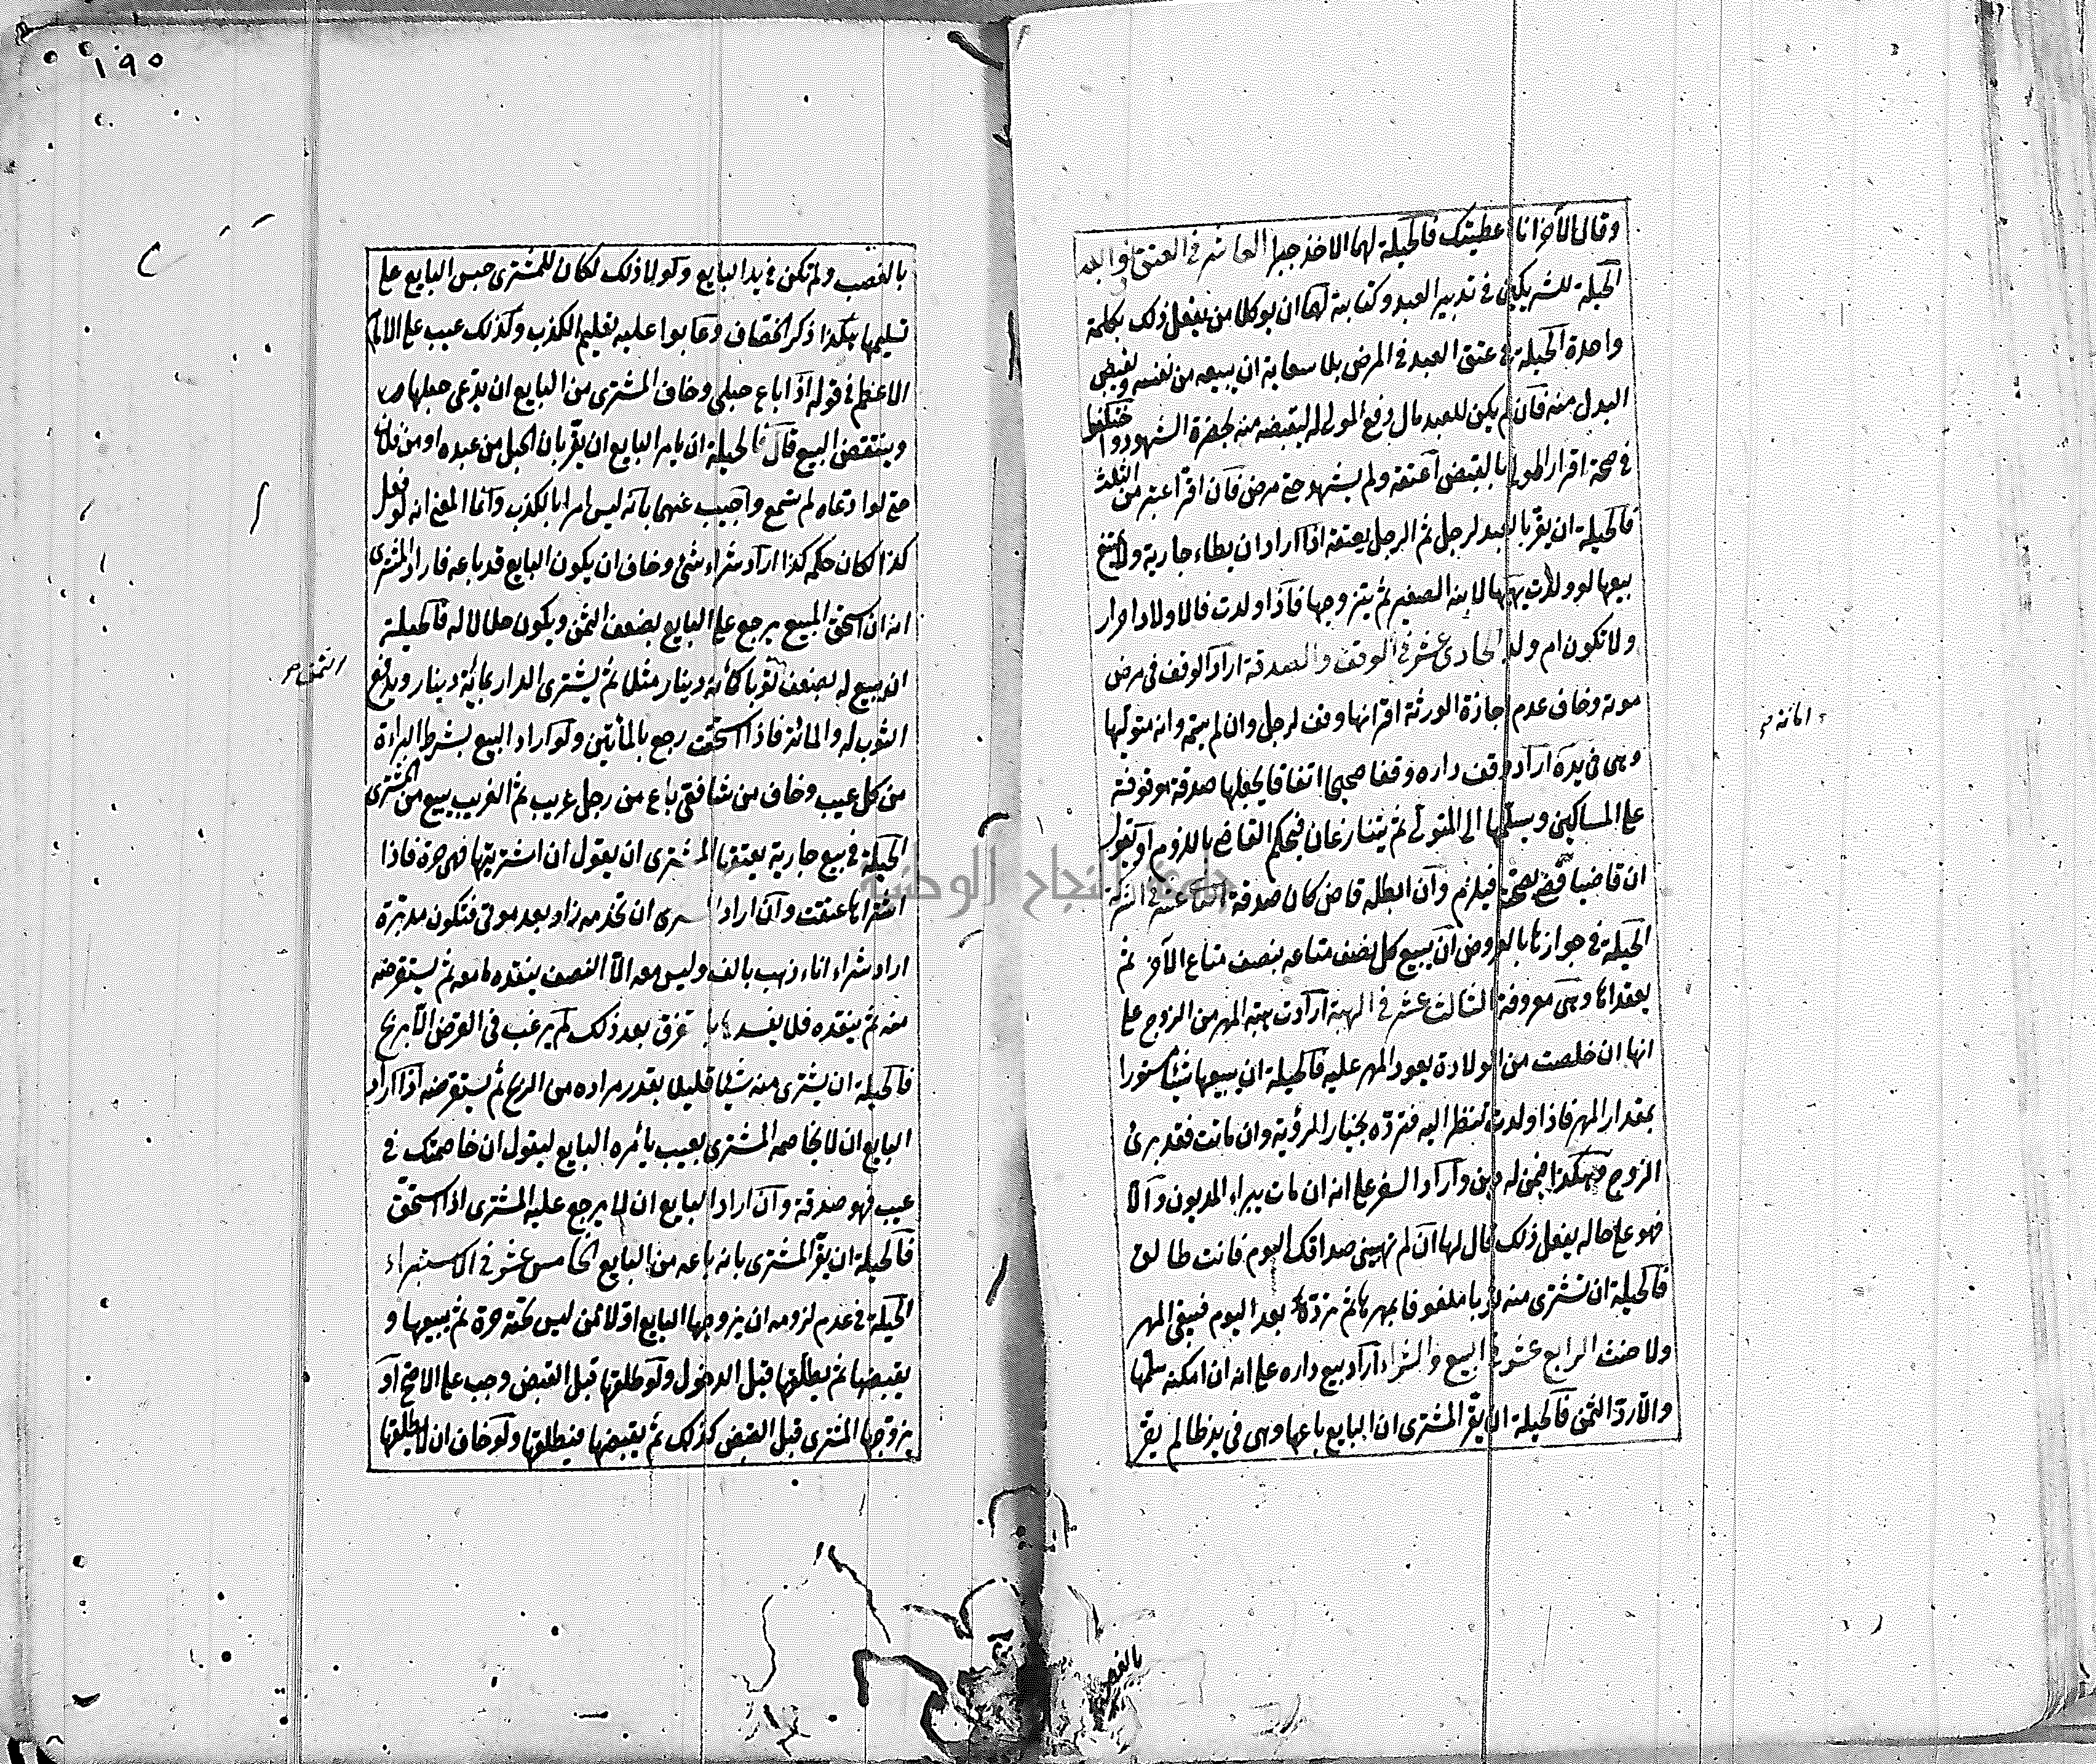 وقال الآخر انا اعطيتك فالحيلة لهما الاخذ جبرا العاشر في العتق وتوابعه
الحيلة للشريكين في تدبير العبد وكتابته لهما ان يوكلا من يفعل ذلك بكلمة
واحدة الحيلة في عتق العبد في المرض بلا سعاية ان يبيعه من نفسه ويقبض
البدل منه فان لم يكن للعبد مال دفع المولى له ليقبضه منه بحضرة الشهود واختلفوا
في صحة اقرار المولى بالقبض اعتقه ولم يشهد حتى مرض فان اقر اعتبر من الثلث
فالحيلة ان يقر بالعبد لرجل ثم الرجل يعتقه اذا اراد ان يطاء جارية ولا يمتنع
بيعها لو ولدت يهبها لابنه الصغير ثم يتزوجها فاذا ولدت فالاولاد احرار
ولا تكون ام ولد الحادى عشر في الوقف والصدقة اراد الوقف في مرض
موته وخاف عدم اجازة الورثة اقر انها وقف لرجل وان لم يسمه وانه متوليها
وهي في يده اراد وقف داره وقفا صحيحا اتفاقا يجعلها صدقة موقوفة
على المساكين ويسلمها الى المتولى ثم يتنازعان فيحكم القاضي باللزوم او يقول
ان قاضيا قضى بصحته فيلزم وان ابطله قاض كان صدقة الثانى عشر في الشركة
الحيلة في جوازها بالعروض ان يبيع كل نصف متاعه بنصف متاع الآخر ثم
يعقدانها وهى معروفة الثالث عشر في الهبة ارادت هبة المهر من الزوج على
انها ان خلصت من الولادة يعود المهر عليه فالحيلة ان يبيعها شيئا مستورا
بمقدار المهر فاذا ولدت تنظر اليه فترده بخيار الرؤية وان ماتت فقد برئ
الزوج وهكذا فيمن له دين واراد السفر على انه ان مات يبراء المديون والا
فهو على حاله يفعل ذلك قال لها ان لم تهبيني صداقك اليوم فانت طالق
فالحيلة ان تشترى منه ثوبا ملفوفا بمهرها ثم ترده بعد اليوم فيبقى المهر
ولا حنث الرابع عشر في البيع والشراء اراد بيع داره على انه ان امكنه سلمها
والا رد الثمن فالحيلة ان يقر المشترى ان البايع باعها وهى في يد ظالم يقر
امانة م
بالغصب
١٩٥
بالغصب ولم تكن في يد البايع ولولا ذلك لكان للمشترى حبس البايع على
تسليمها هكذا ذكر الخصاف وعابوا عليه تعليم الكذب وكذلك عيب على الامام
الاعظم في قوله اذا باع حبلى وخاف المشترى من البايع ان يدعى حبلها
وينتقض البيع قال فالحيلة ان يامر البايع ان يقر بان الحبل من عبده او من فلان
حتى لو ادعاه لم تسمع واجيب عنهما بانه ليس امرا بالكذب وانما المعنى انه لو فعل
كذا لكان حكمه كذا اراد شراء شئ وخاف ان يكون البايع قد باعه فاراد المشترى
انه ان استحق المبيع يرجع على البايع بضعف الثمن ويكون حلالا له فالحيلة
ان يبيع له بضعف ثوبا كمائة دينار مثلا ثم يشترى الدار بمائة دينار ويدفع
الثمن ص
الثوب له والمائة فاذا استحقت رجع بالمأتين ولو اراد البيع بشرط البراءة
من كل عيب وخاف من شافعى باع من رجل غريب ثم الغريب يبيع من المشترى
الحيلة في بيع جارية يعتقها المشترى ان يقول ان اشتريتها فهى حرة فاذا
اشتراها عتقت وان اراد المشترى ان تخدمه زاد بعد موتى فتكون مدبرة
اراد شراء اناء ذهب بالف وليس معه الا النصف ينقده مامعه ثم يستقرضه
منه ثم ينقده فلا يفسد بالتفرق بعد ذلك لم يرغب في القرض الا بربح
فالحيلة ان يشترى منه شيئا قليلا بقدر مراده من الربح ثم يستقرضه اذا اراد
البايع ان لا يخاصمه المشترى بعيب يأمره البايع ليقول ان خاصمتك في
عيب فهو صدقة وان اراد البايع ان لا يرجع عليه المشترى اذا استحق
فالحيلة ان يقر المشترى بانه باعه من البايع الخامس عشر في الاستبراء
الحيلة في عدم لزومه ان يزوجها البايع اولا ممن ليس تحته حرة ثم يبيعها و
يقبضها ثم يطلقها قبل الدخول ولو طلقها قبل القبض وجب على الاصح او
يزوجها المشترى قبل القبض كذلك ثم يقبضها فيطلقها ولو خاف ان لا يطلقها